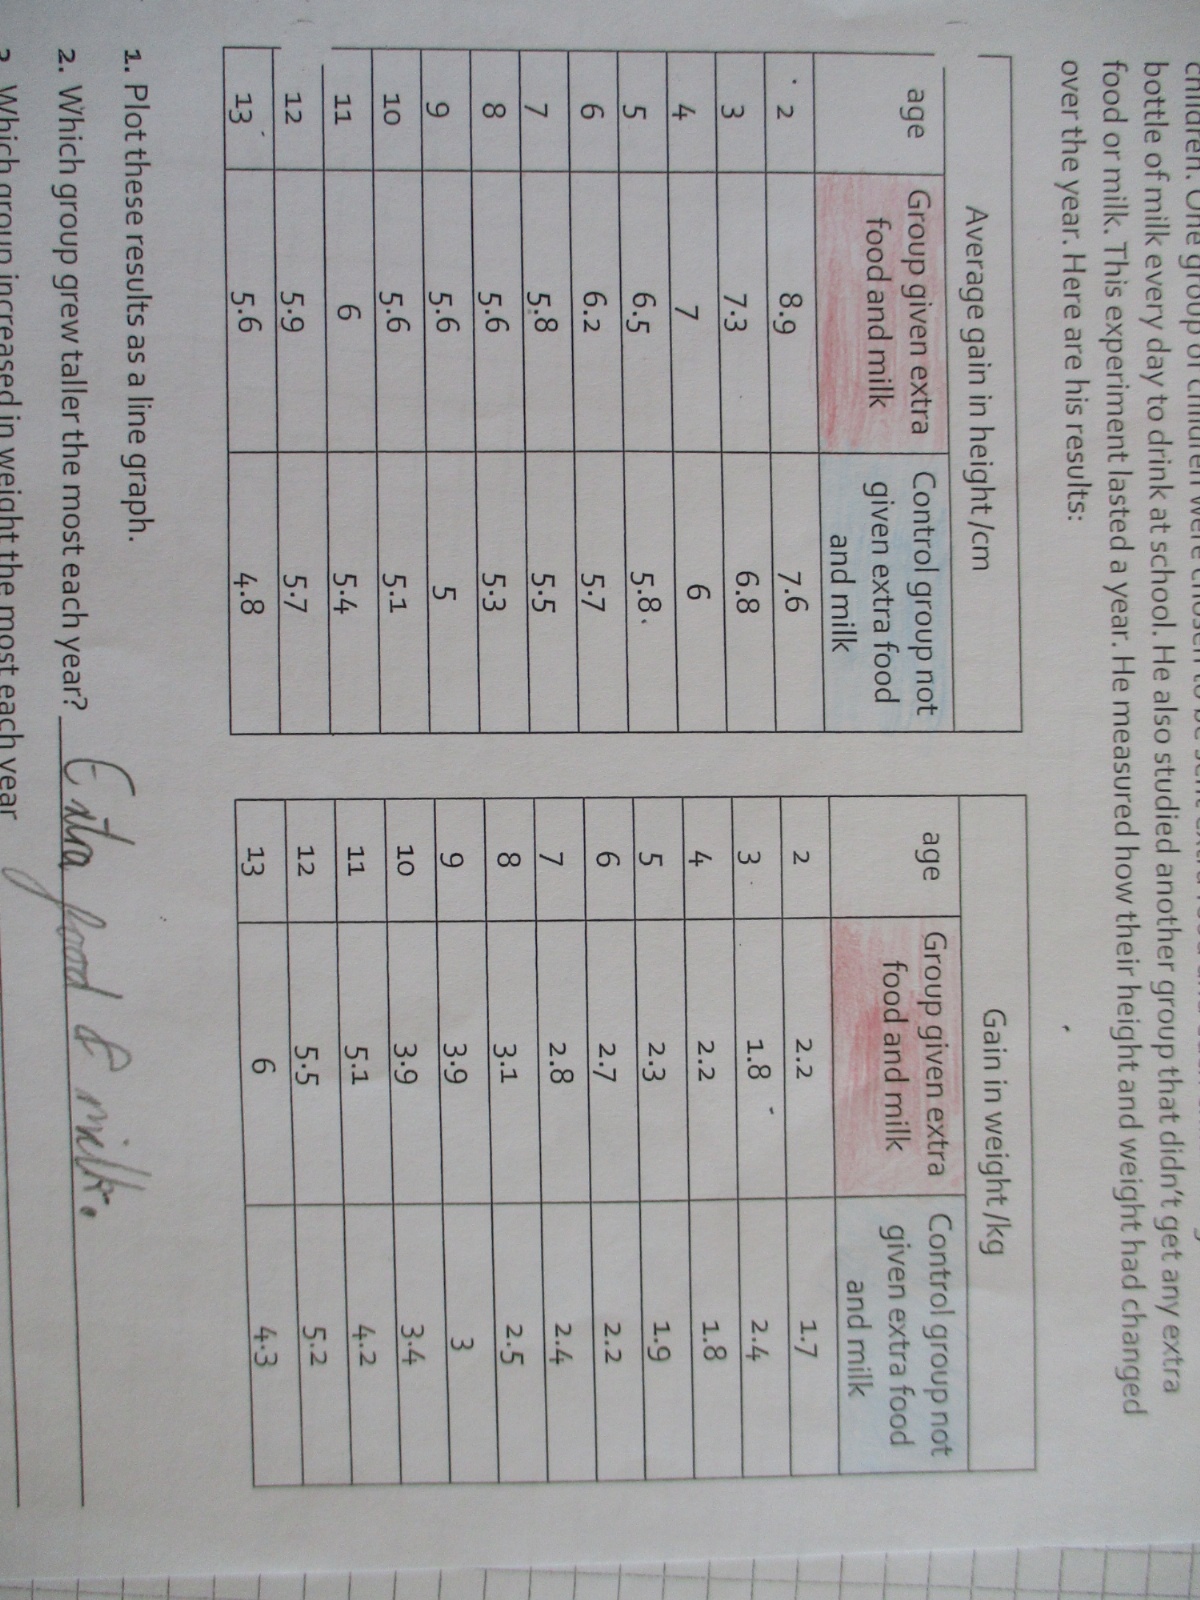 children. One group of children were chosen to be
bottle of milk every day to drink at school. He also studied another group that didn't get any extra
food or milk. This experiment lasted a year. He measured how their height and weight had changed
over the year. Here are his results:
Average gain in height /cm
age Group given extra food and milk Control group not given extra food and milk
2 8.9 7.6
3 7.3 6.8
4 7 6
5 6.5 5.8
6 6.2 5.7
7 5.8 5.5
8 5.6 5.3
9 5.6 5
10 5.6 5.1
11 6 5.4
12 5.9 5.7
13 5.6 4.8
Gain in weight /kg
age Group given extra food and milk Control group not given extra food and milk
2 2.2 1.7
3 1.8 2.4
4 2.2 1.8
5 2.3 1.9
6 2.7 2.2
7 2.8 2.4
8 3.1 2.5
9 3.9 3
10 3.9 3.4
11 5.1 4.2
12 5.5 5.2
13 6 4.3
1. Plot these results as a line graph.
2. Which group grew taller the most each year? Extra food & milk.
3. Which group increased in weight the most each year